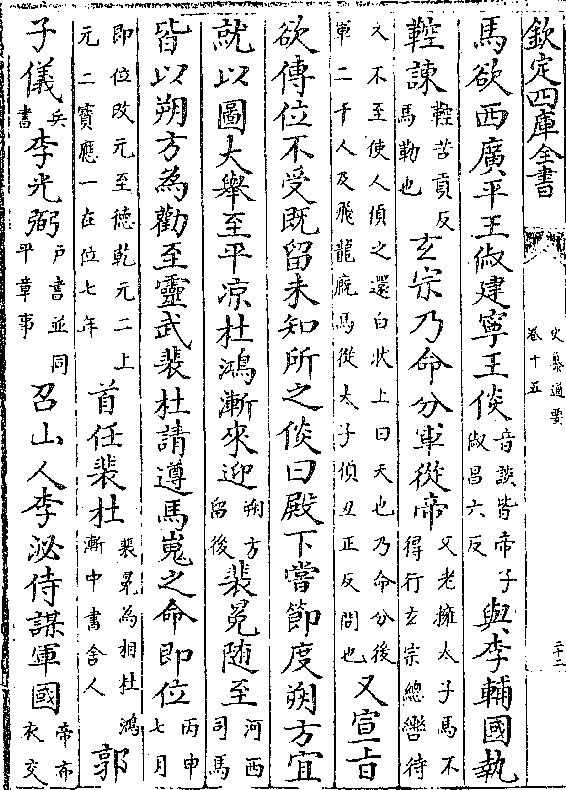 欽定四庫全書
史纂通要
卷十五
二十二
馬欲西廣平王俶建寧王倓音談皆帝子俶昌六反與李輔國執
鞚諫鞚苦貢反馬勒也玄宗乃命分軍從帝父老擁太子馬不得行玄宗總轡待
久不至使人偵之還白狀上曰天也乃命分後軍二千人及飛龍廐馬從太子偵丑正反問也又宣旨
欲傳位不受既留未知所之倓曰殿下嘗節度朔方宜
就以圖大舉至平凉杜鴻漸來迎朔方留後裴冕随至河西司馬
皆以朔方為勸至靈武裴杜請遵馬嵬之命即位丙申七月
即位改元至德乾元二上元二寶應一在位七年首任裴杜裴冕為相杜鴻漸中書舍人郭
子儀兵書李光弼戸書並同平章事召山人李泌侍謀軍國帝布衣交